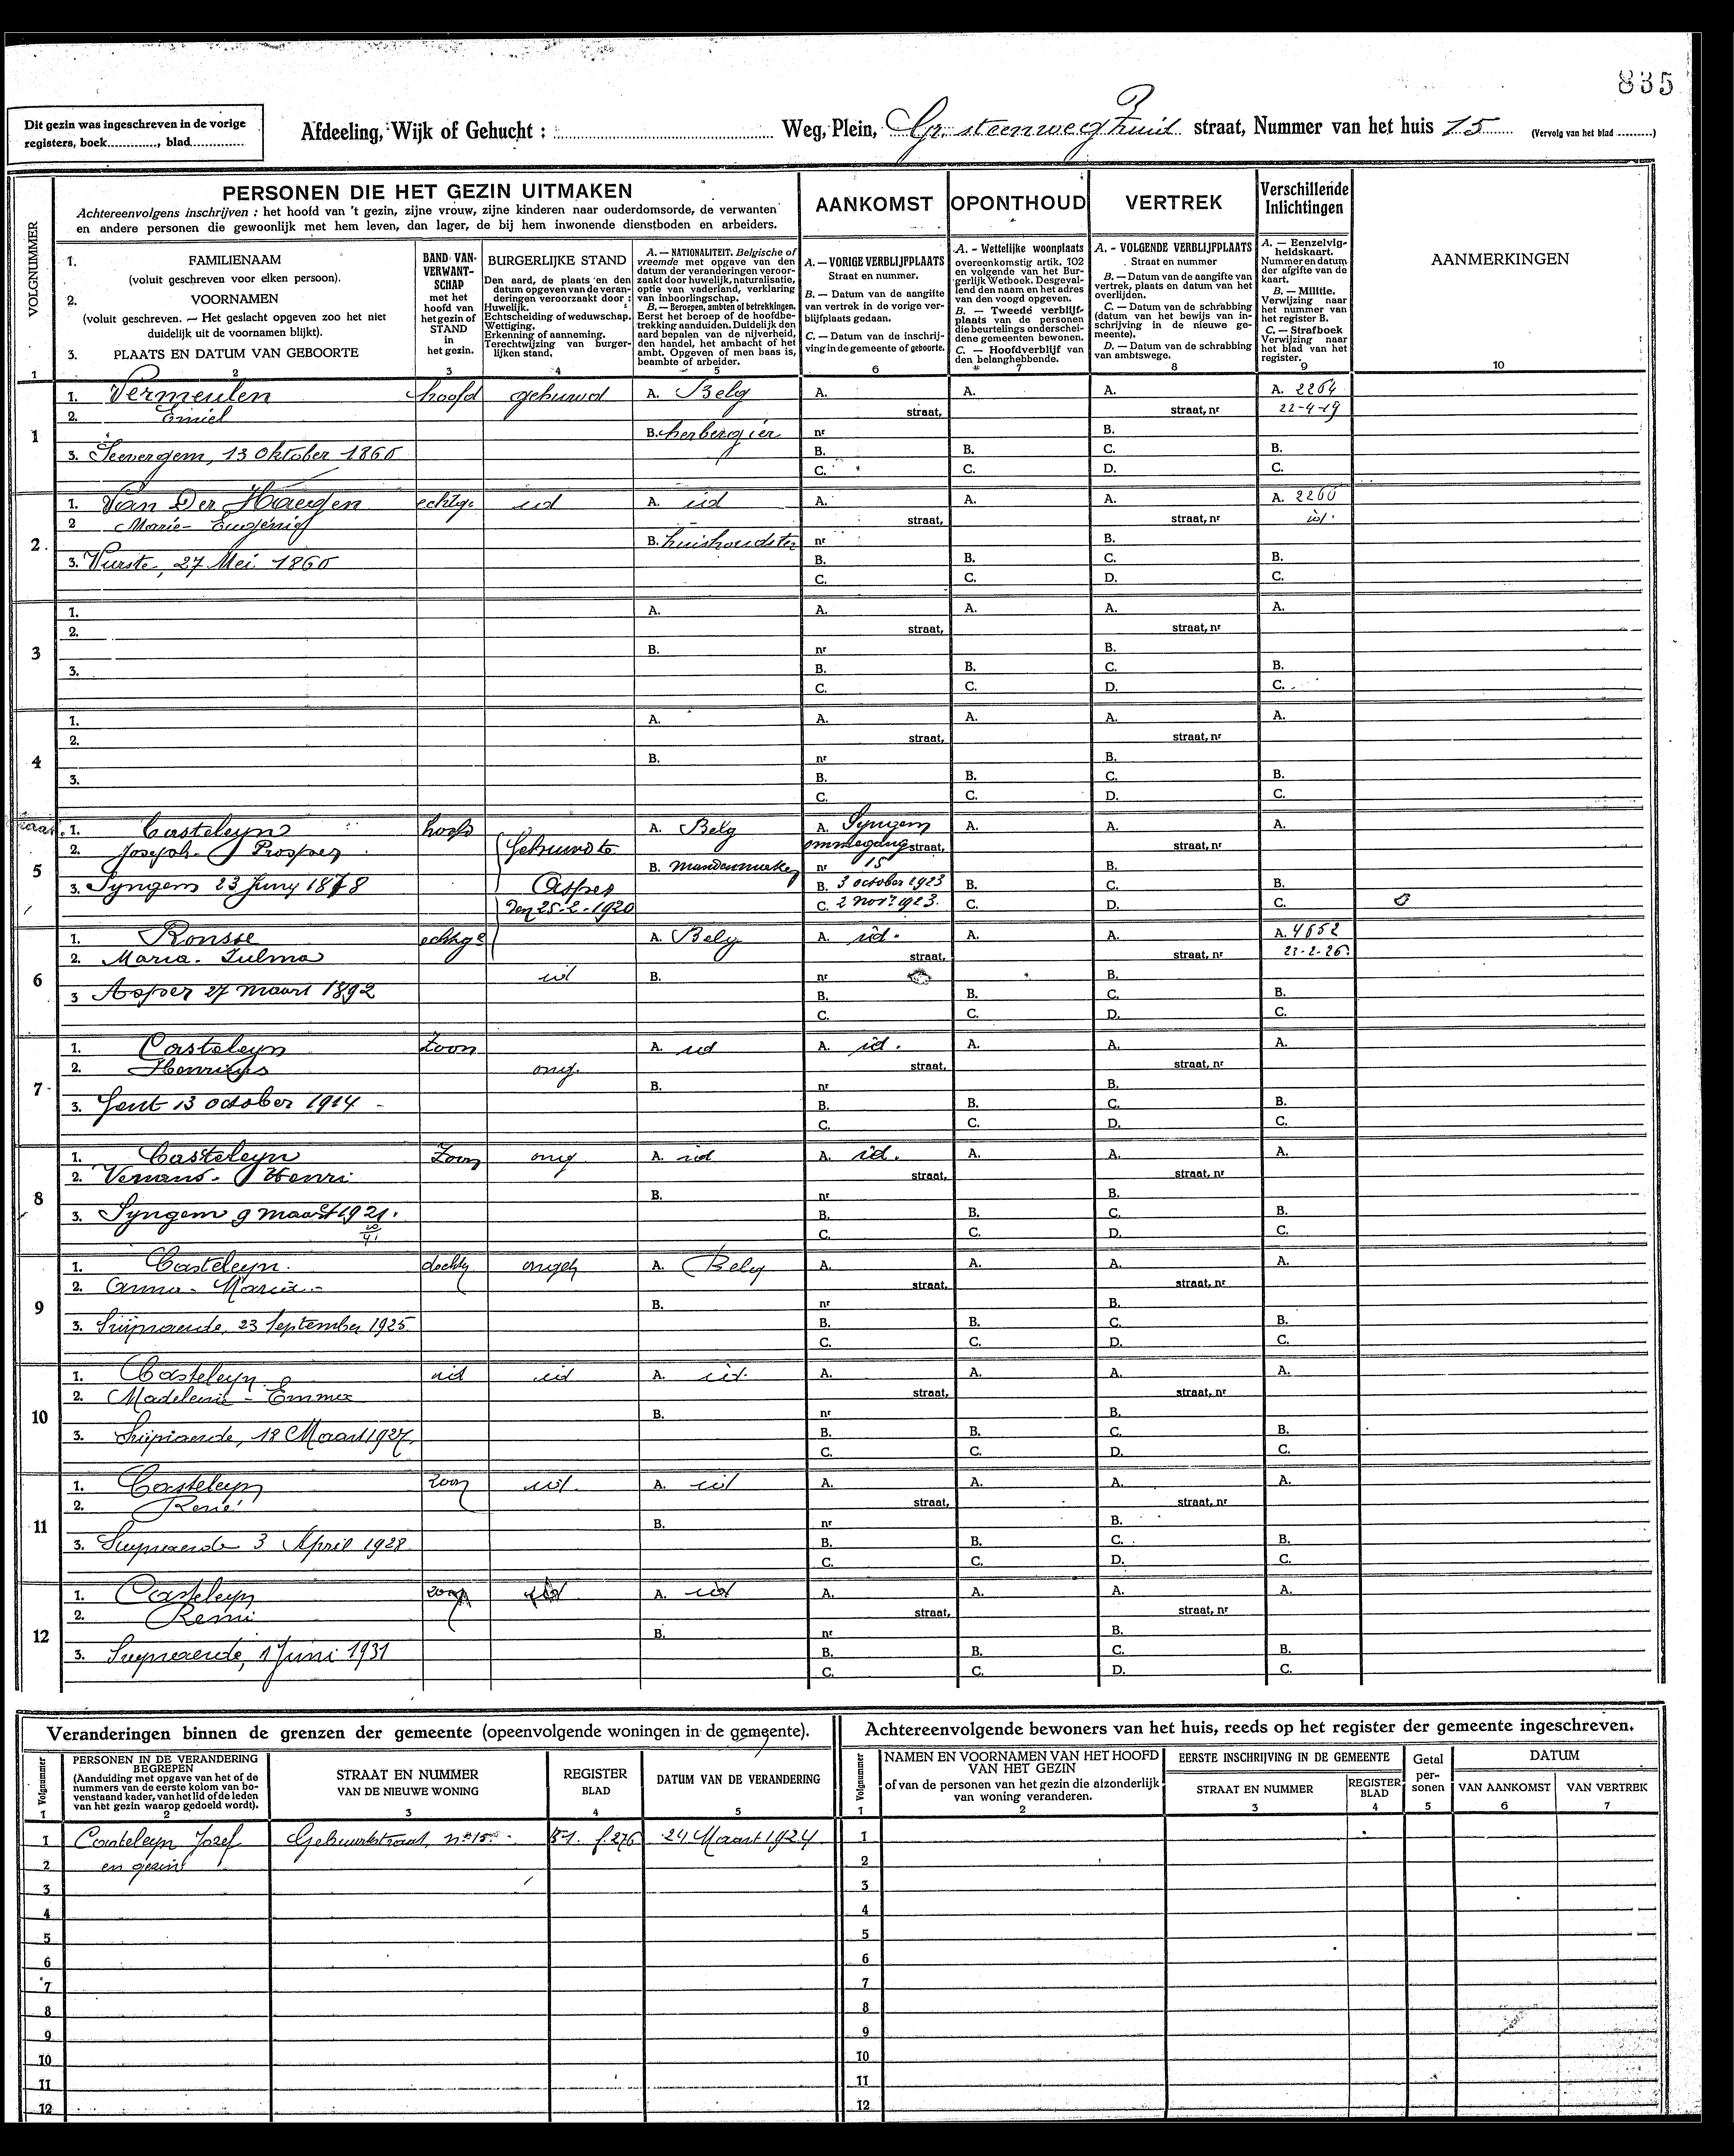 835
Dit gezin was ingeschreven in de vorige
registers, boek............, blad..............
Afdeeling, Wijk of Gehucht : .......... Weg, Plein, Gr. steenweeg Zuid straat, Nummer van het huis 15 (Vervolg van het blad ..........)
VOLGNUMMER
PERSONEN DIE HET GEZIN UITMAKEN
Achtereenvolgens inschrijven : het hoofd van 't gezin, zijne vrouw, zijne kinderen naar ouderdomsorde, de verwanten
en andere personen die gewoonlijk met hem leven, dan lager, de bij hem inwonende dienstboden en arbeiders.
AANKOMST
OPONTHOUD
VERTREK
Verschillende
Inlichtingen
AANMERKINGEN
1. FAMILIENAAM
(voluit geschreven voor elken persoon).
2. VOORNAMEN
(voluit geschreven. — Het geslacht opgeven zoo het niet
duidelijk uit de voornamen blijkt).
3. PLAATS EN DATUM VAN GEBOORTE
BAND VAN-
VERWANT-
SCHAP
met het
hoofd van
het gezin of
STAND
in
het gezin.
BURGERLIJKE STAND
Den aard, de plaats en den
datum opgeven van de veran-
deringen veroorzaakt door :
Huwelijk.
Echtscheiding of weduwschap.
Wettiging.
Erkenning of aanneming.
Terechtwijzing van burger-
lijken stand.
A. — NATIONALITEIT. Belgische of
vreemde met opgave van den
datum der veranderingen veroor-
zaakt door huwelijk, naturalisatie,
optie van vaderland, verklaring
van inboorlingschap.
B. — Beroepen, ambten of betrekkingen.
Eerst het beroep of de hoofdbe-
trekking aanduiden. Duidelijk den
aard bepalen van de nijverheid,
den handel, het ambacht of het
ambt. Opgeven of men baas is,
beambte of arbeider.
A. — VORIGE VERBLIJFPLAATS
Straat en nummer.
B. — Datum van de aangifte
van vertrek in de vorige ver-
blijfplaats gedaan.
C. — Datum van de inschrij-
ving in de gemeente of geboorte.
A. - Wettelijke woonplaats
overeenkomstig artik. 102
en volgende van het Bur-
gerlijk Wetboek. Desgeval-
lend den naam en het adres
van den voogd opgeven.
B. — Tweede verblijf-
plaats van de personen
die beurtelings onderschei-
dene gemeenten bewonen.
C. — Hoofdverblijf van
den belanghebbende.
A. - VOLGENDE VERBLIJFPLAATS
Straat en nummer
B. — Datum van de aangifte van
vertrek, plaats en datum van het
overlijden.
C. — Datum van de schrabbing
(datum van het bewijs van in-
schrijving in de nieuwe ge-
meente).
D. — Datum van de schrabbing
van ambtswege.
A. — Eenzelvig-
heidskaart.
Nummer en datum
der afgifte van de
kaart.
B. — Militie.
Verwijzing naar
het nummer van
het register B.
C. — Strafboek
Verwijzing naar
het blad van het
register.
1 2 3 4 5 6 7 8 9 10
1 1. Vermeulen hoofd gehuwd A. Belg A. A. A. A. 2264
2. Emiel straat, straat, nr 22-4-19
B. herbergier nr B.
3. Seevergem, 13 Oktober 1860 B. B. C. B.
C. C. D. C.
2. 1. Van Der Haegen echtge id A. id A. A. A. A. 2260
2 Marie-Eugenie straat, straat, nr id.
B. huishoudster nr B.
3. Vurste, 27 Mei 1860 B. B. C. B.
C. C. D. C.
3 1. A. A. A. A. A.
2. straat, straat, nr
B. nr B.
3. B. B. C. B.
C. C. D. C.
4 1. A. A. A. A. A.
2. straat, straat, nr
B. nr B.
3. B. B. C. B.
C. C. D. C.
5 1. Casteleyn hoofd A. Belg A. Syngem A. A. A.
2. Joseph-Prosper Gehuwd te ommegang straat, straat, nr
B. mandenmaker nr 15 B.
3. Syngem 23 Juny 1878 Asper B. 3 october 1923 B. C. B.
den 25-2-1920 C. 2 nov. 1923. C. D. C.
6 1. Ronsse echtge A. Belg A. id. A. A. A. 4652
2. Maria-Zulma straat, straat, nr 23-2-26.
id B. nr B.
3 Asper 27 maart 1892 B. B. C. B.
C. C. D. C.
7 1. Casteleyn Zoon A. id A. id. A. A. A.
2. Henricus ong. straat, straat, nr
B. nr B.
3. Gent 13 october 1914 B. B. C. B.
C. C. D. C.
8 1. Casteleyn Zoon ong A. id A. id. A. A. A.
2. Henri straat, straat, nr
B. nr B.
3. Syngem 9 maart 1921. B. B. C. B.
C. C. D. C.
9 1. Casteleyn dochty ongeh A. Belg A. A. A. A.
2. Anna-Maria straat, straat, nr
B. nr B.
3. 23 September 1925 B. B. C. B.
C. C. D. C.
10 1. Casteleyn id id A. id. A. A. A. A.
2. Madeleine-Emma straat, straat, nr
B. nr B.
3. 18 Maart 1927. B. B. C. B.
C. C. D. C.
11 1. Casteleyn zoon id. A. id A. A. A. A.
2. René straat, straat, nr
B. nr B.
3. 3 April 1928 B. B. C. B.
C. C. D. C.
12 1. Casteleyn zoon id A. id A. A. A. A.
2. Remi straat, straat, nr
B. nr B.
3. 1 Juni 1931 B. B. C. B.
C. C. D. C.
Veranderingen binnen de grenzen der gemeente (opeenvolgende woningen in de gemeente).
Volgnummer
PERSONEN IN DE VERANDERING
BEGREPEN
(Aanduiding met opgave van het of de
nummers van de eerste kolom van bo-
venstaand kader, van het lid of de leden
van het gezin waarop gedoeld wordt).
STRAAT EN NUMMER
VAN DE NIEUWE WONING
REGISTER
BLAD
DATUM VAN DE VERANDERING
1 2 3 4 5
1 Casteleyn Jozef Gebuurtstraat, nr 15. B1. f. 276 24 Maart 1924
2 en gezin
3
4
5
6
7
8
9
10
11
12
Achtereenvolgende bewoners van het huis, reeds op het register der gemeente ingeschreven.
Volgnummer
NAMEN EN VOORNAMEN VAN HET HOOFD
VAN HET GEZIN
of van de personen van het gezin die afzonderlijk
van woning veranderen.
EERSTE INSCHRIJVING IN DE GEMEENTE
STRAAT EN NUMMER
REGISTER
BLAD
Getal
per-
sonen
DATUM
VAN AANKOMST
VAN VERTREK
1 2 3 4 5 6 7
1
2
3
4
5
6
7
8
9
10
11
12